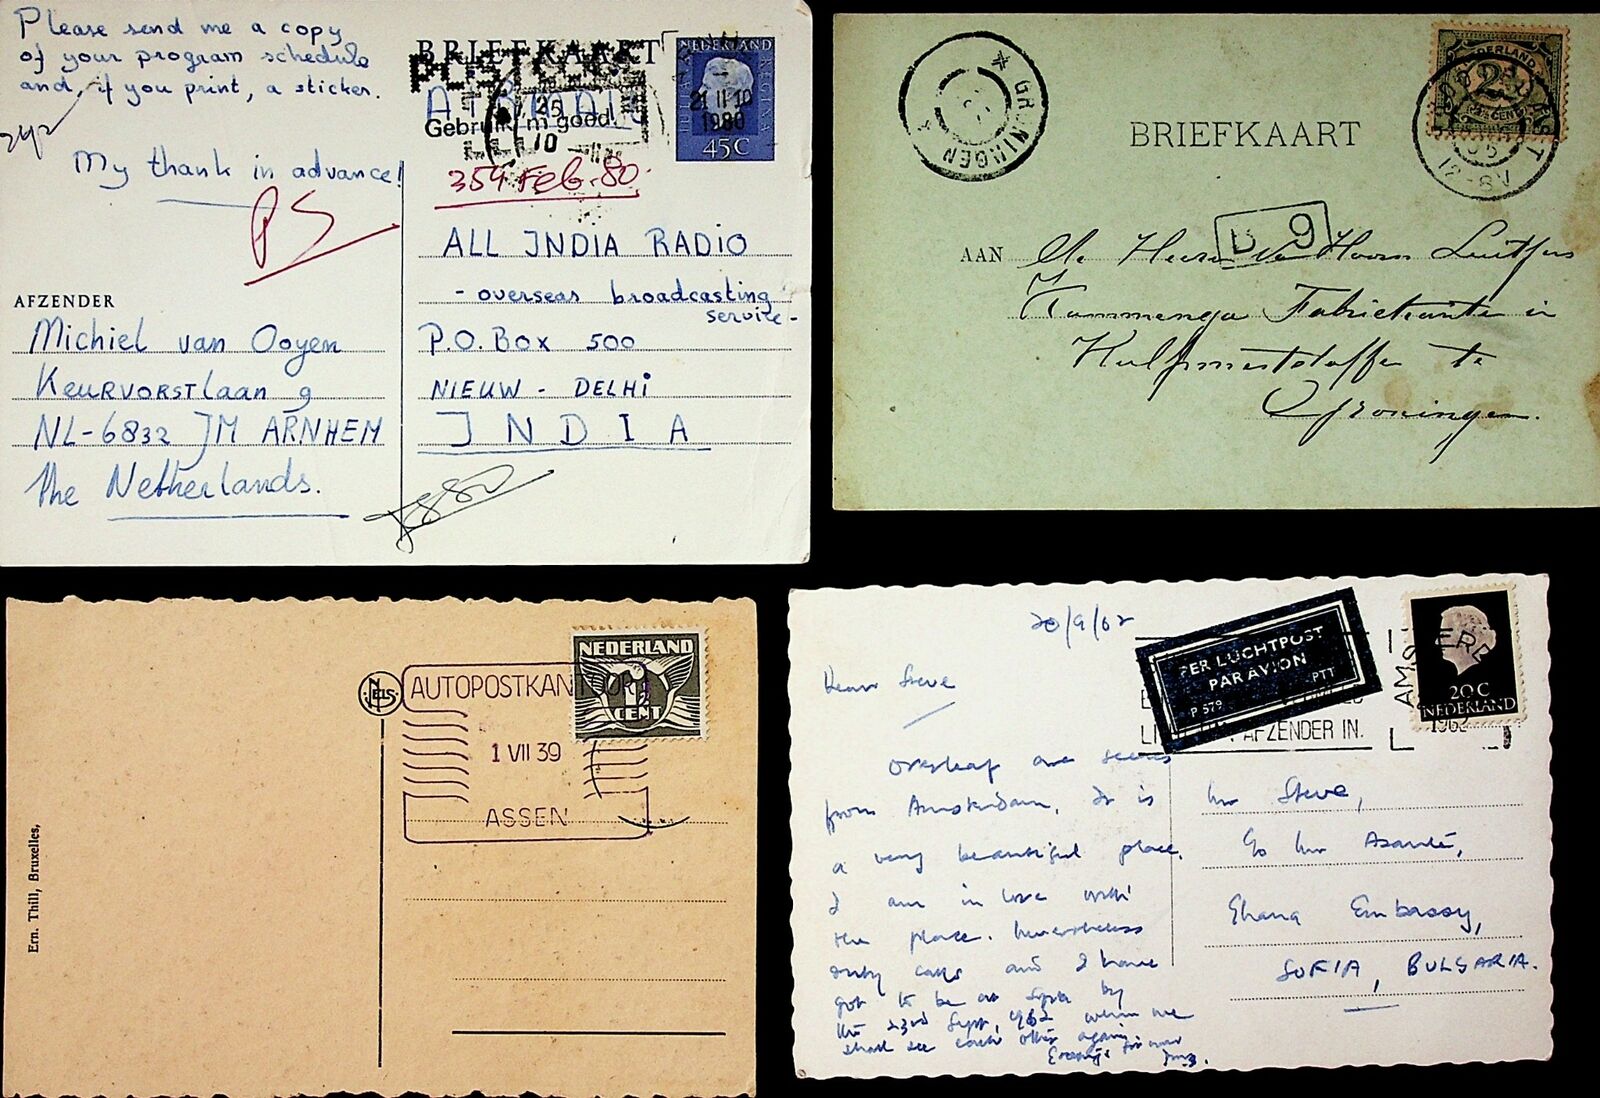 Please send me a copy
of your program schedule
and, if you print, a sticker.
My thank in advance!
AFZENDER
Michiel van Ooyen
Keurvorstlaan 9
NL-6832 JM ARNHEM
The Netherlands.
BRIEFKAART
NEDERLAND
JULIANA REGINA
45C
21 II 10
1980
Gebruik 'm goed!
354 Feb. 80.
ALL INDIA RADIO
- overseas broadcasting
service -
P.O. Box 500
NIEUW - DELHI
INDIA
GRONINGEN
NEDERLAND
2½
CENT
12-8V
BRIEFKAART
B 9
AAN
De Heeren Van Hoorn Luitjens
Kammenga Fabrikanten in
Hulpmeststoffen te
Groningen.
NELS
Ern. Thill, Bruxelles,
AUTOPOSTKANTOOR
1 VII 39
ASSEN
NEDERLAND
1½
CENT
20/9/62
PER LUCHTPOST
PAR AVION
P 579 PTT
AFZENDER IN.
AMSTER
20C
NEDERLAND
Dear Steve
Overleaf are scenes
from Amsterdam. It is
a very beautiful place.
I am in love with
the place. Nevertheless
duty calls and I have
got to be at Sofia by
the 23rd Sept, 1962 when we
shall see each other again.
Mr Steve,
c/o Mr Asante,
Ghana Embassy,
SOFIA, BULGARIA.